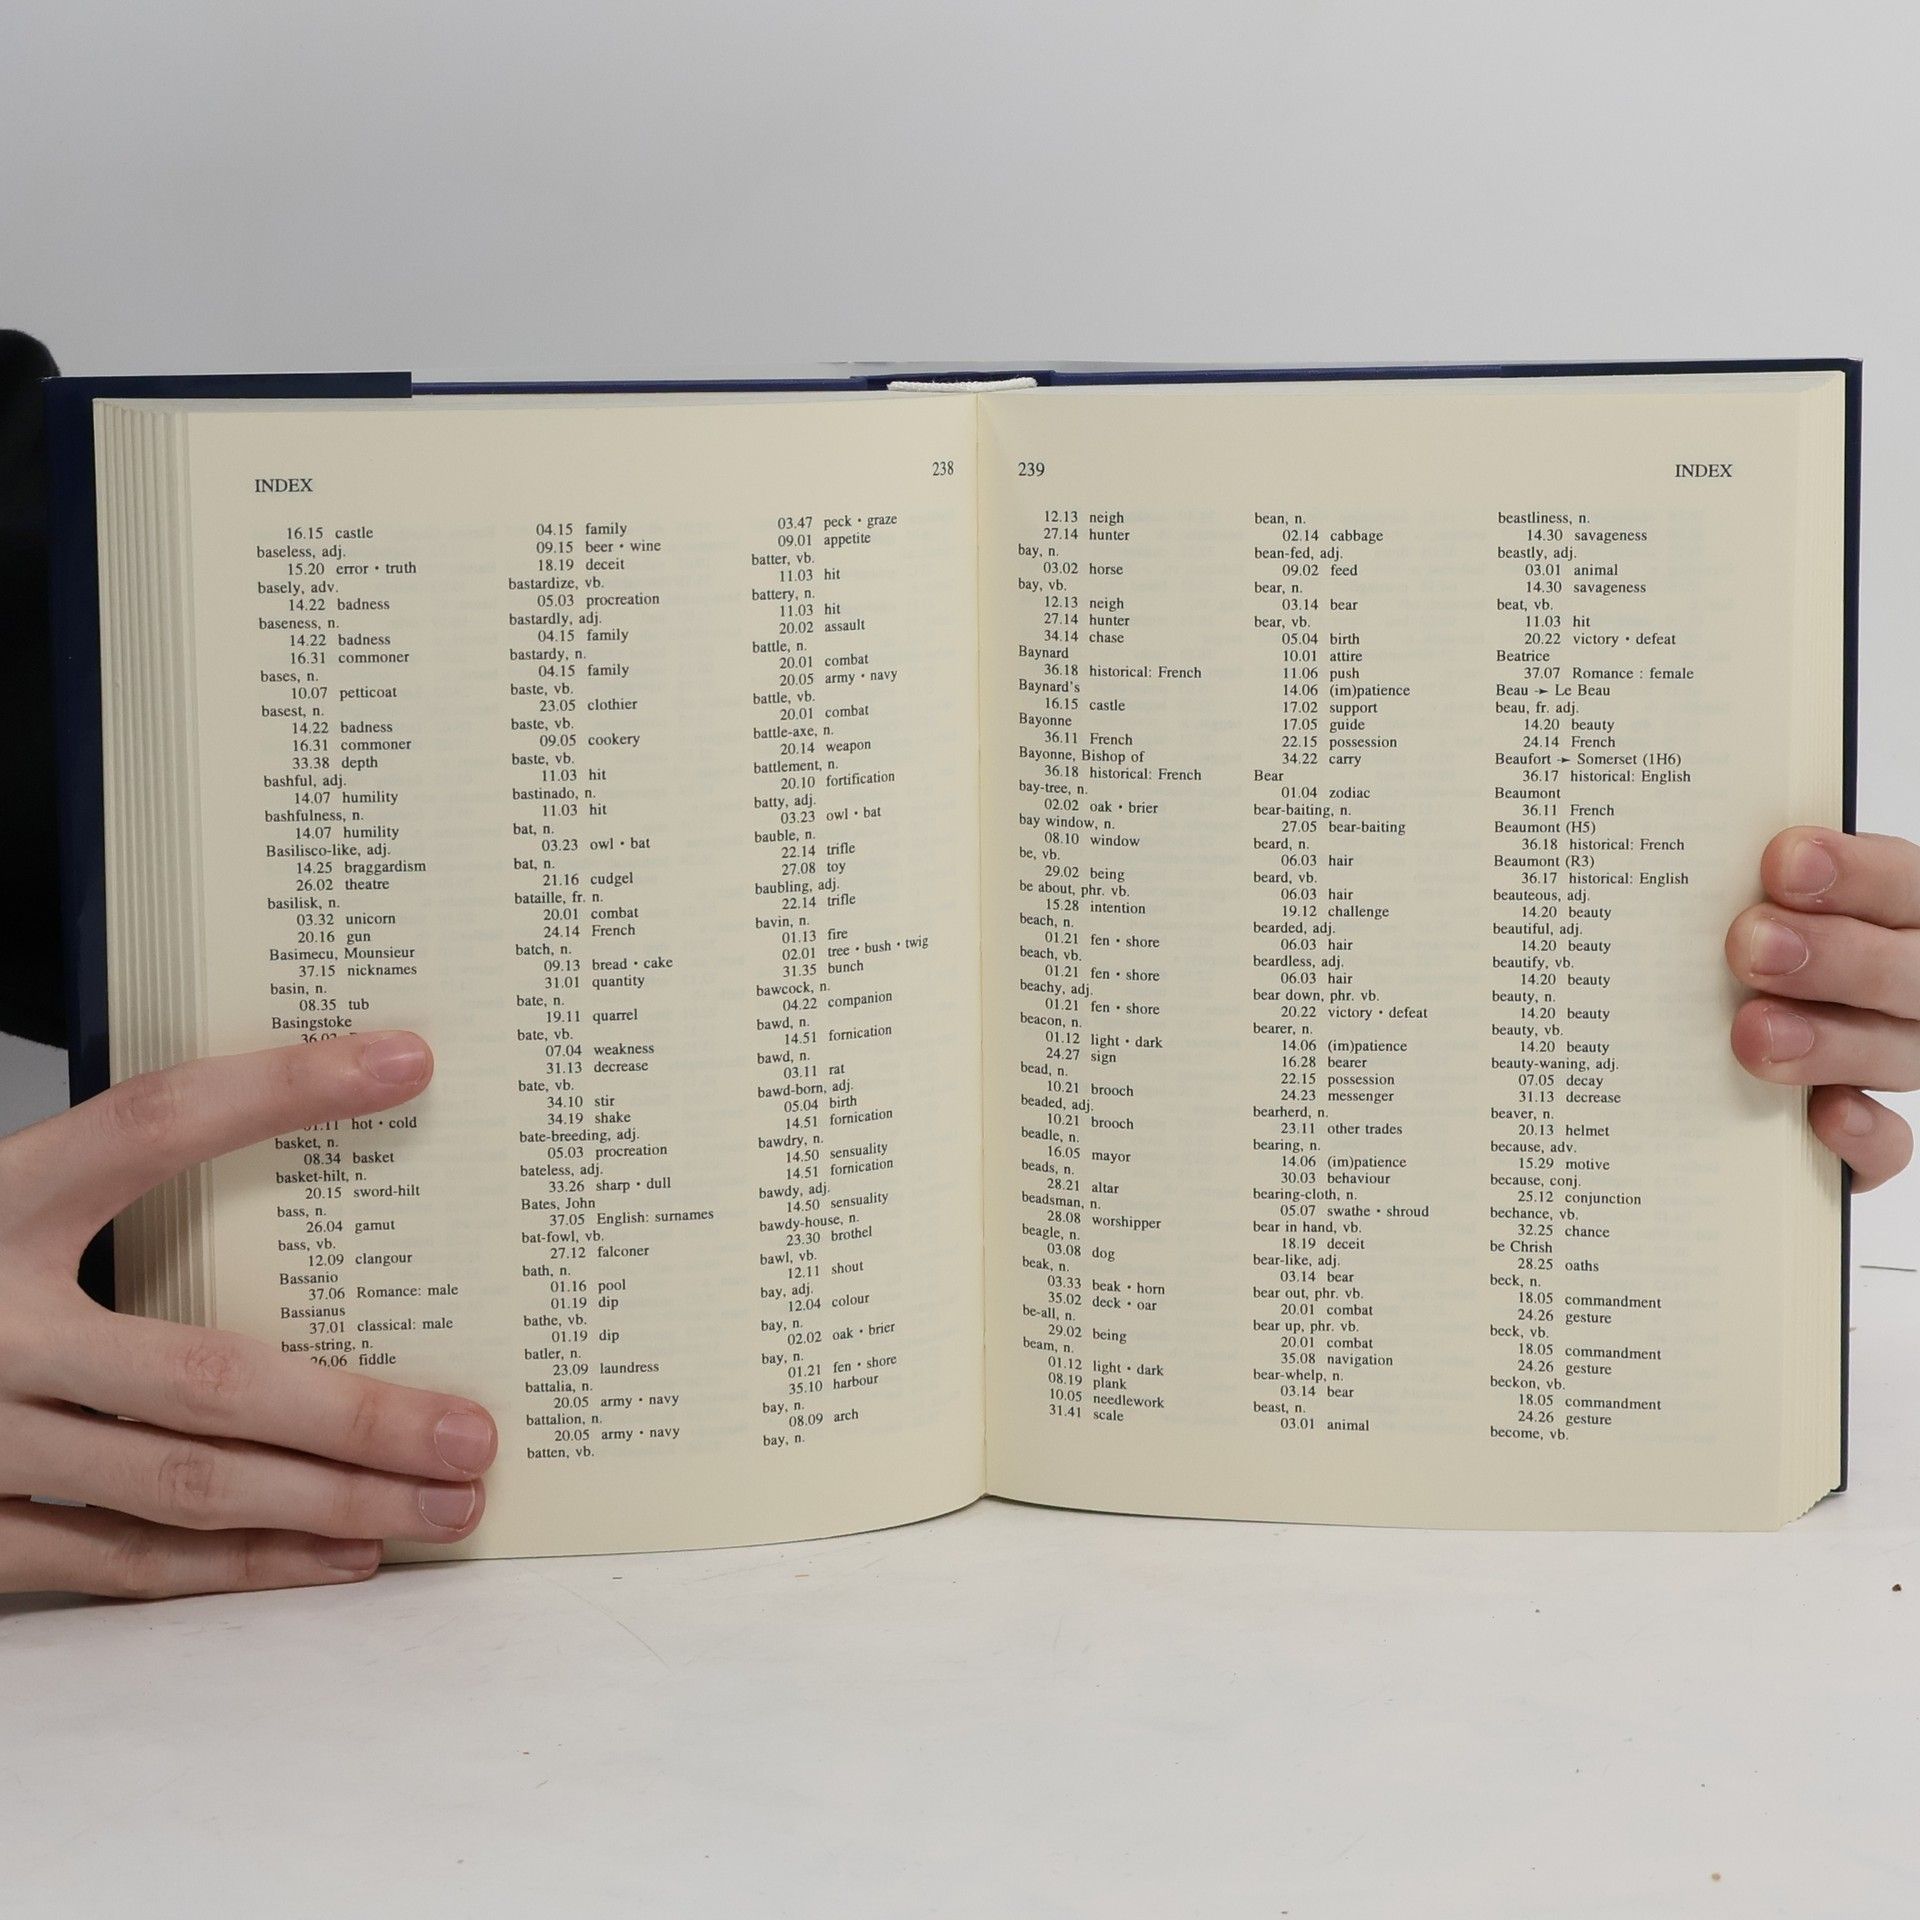 INDEX
238
16.15 castle
baseless, adj.
15.20 error • truth
basely, adv.
14.22 badness
baseness, n.
14.22 badness
16.31 commoner
bases, n.
10.07 petticoat
basest, n.
14.22 badness
16.31 commoner
33.38 depth
bashful, adj.
14.07 humility
bashfulness, n.
14.07 humility
Basilisco-like, adj.
14.25 braggardism
26.02 theatre
basilisk, n.
03.32 unicorn
20.16 gun
Basimecu, Mounsieur
37.15 nicknames
basin, n.
08.35 tub
Basingstoke
36.02
01.11 hot • cold
basket, n.
08.34 basket
basket-hilt, n.
20.15 sword-hilt
bass, n.
26.04 gamut
bass, vb.
12.09 clangour
Bassanio
37.06 Romance: male
Bassianus
37.01 classical: male
bass-string, n.
26.06 fiddle
04.15 family
09.15 beer • wine
18.19 deceit
bastardize, vb.
05.03 procreation
bastardly, adj.
04.15 family
bastardy, n.
04.15 family
baste, vb.
23.05 clothier
baste, vb.
09.05 cookery
baste, vb.
11.03 hit
bastinado, n.
11.03 hit
bat, n.
03.23 owl • bat
bat, n.
21.16 cudgel
bataille, fr. n.
20.01 combat
24.14 French
batch, n.
09.13 bread • cake
31.01 quantity
bate, n.
19.11 quarrel
bate, vb.
07.04 weakness
31.13 decrease
bate, vb.
34.10 stir
34.19 shake
bate-breeding, adj.
05.03 procreation
bateless, adj.
33.26 sharp • dull
Bates, John
37.05 English: surnames
bat-fowl, vb.
27.12 falconer
bath, n.
01.16 pool
01.19 dip
bathe, vb.
01.19 dip
batler, n.
23.09 laundress
battalia, n.
20.05 army • navy
battalion, n.
20.05 army • navy
batten, vb.
03.47 peck • graze
09.01 appetite
batter, vb.
11.03 hit
battery, n.
11.03 hit
20.02 assault
battle, n.
20.01 combat
20.05 army • navy
battle, vb.
20.01 combat
battle-axe, n.
20.14 weapon
battlement, n.
20.10 fortification
batty, adj.
03.23 owl • bat
bauble, n.
22.14 trifle
27.08 toy
baubling, adj.
22.14 trifle
bavin, n.
01.13 fire
02.01 tree • bush • twig
31.35 bunch
bawcock, n.
04.22 companion
bawd, n.
14.51 fornication
bawd, n.
03.11 rat
bawd-born, adj.
05.04 birth
14.51 fornication
bawdry, n.
14.50 sensuality
14.51 fornication
bawdy, adj.
14.50 sensuality
bawdy-house, n.
23.30 brothel
bawl, vb.
12.11 shout
bay, adj.
12.04 colour
bay, n.
02.02 oak • brier
bay, n.
01.21 fen • shore
35.10 harbour
bay, n.
08.09 arch
bay, n.
239
INDEX
12.13 neigh
27.14 hunter
bay, n.
03.02 horse
bay, vb.
12.13 neigh
27.14 hunter
34.14 chase
Baynard
36.18 historical: French
Baynard's
16.15 castle
Bayonne
36.11 French
Bayonne, Bishop of
36.18 historical: French
bay-tree, n.
02.02 oak • brier
bay window, n.
08.10 window
be, vb.
29.02 being
be about, phr. vb.
15.28 intention
beach, n.
01.21 fen • shore
beach, vb.
01.21 fen • shore
beachy, adj.
01.21 fen • shore
beacon, n.
01.12 light • dark
24.27 sign
bead, n.
10.21 brooch
beaded, adj.
10.21 brooch
beadle, n.
16.05 mayor
beads, n.
28.21 altar
beadsman, n.
28.08 worshipper
beagle, n.
03.08 dog
beak, n.
03.33 beak • horn
35.02 deck • oar
be-all, n.
29.02 being
beam, n.
01.12 light • dark
08.19 plank
10.05 needlework
31.41 scale
bean, n.
02.14 cabbage
bean-fed, adj.
09.02 feed
bear, n.
03.14 bear
bear, vb.
05.04 birth
10.01 attire
11.06 push
14.06 (im)patience
17.02 support
17.05 guide
22.15 possession
34.22 carry
Bear
01.04 zodiac
bear-baiting, n.
27.05 bear-baiting
beard, n.
06.03 hair
beard, vb.
06.03 hair
19.12 challenge
bearded, adj.
06.03 hair
beardless, adj.
06.03 hair
bear down, phr. vb.
20.22 victory • defeat
bearer, n.
14.06 (im)patience
16.28 bearer
22.15 possession
24.23 messenger
bearherd, n.
23.11 other trades
bearing, n.
14.06 (im)patience
30.03 behaviour
bearing-cloth, n.
05.07 swathe • shroud
bear in hand, vb.
18.19 deceit
bear-like, adj.
03.14 bear
bear out, phr. vb.
20.01 combat
bear up, phr. vb.
20.01 combat
35.08 navigation
bear-whelp, n.
03.14 bear
beast, n.
03.01 animal
beastliness, n.
14.30 savageness
beastly, adj.
03.01 animal
14.30 savageness
beat, vb.
11.03 hit
20.22 victory • defeat
Beatrice
37.07 Romance : female
Beau ➛ Le Beau
beau, fr. adj.
14.20 beauty
24.14 French
Beaufort ➛ Somerset (1H6)
36.17 historical: English
Beaumont
36.11 French
Beaumont (H5)
36.18 historical: French
Beaumont (R3)
36.17 historical: English
beauteous, adj.
14.20 beauty
beautiful, adj.
14.20 beauty
beautify, vb.
14.20 beauty
beauty, n.
14.20 beauty
beauty, vb.
14.20 beauty
beauty-waning, adj.
07.05 decay
31.13 decrease
beaver, n.
20.13 helmet
because, adv.
15.29 motive
because, conj.
25.12 conjunction
bechance, vb.
32.25 chance
be Chrish
28.25 oaths
beck, n.
18.05 commandment
24.26 gesture
beck, vb.
18.05 commandment
24.26 gesture
beckon, vb.
18.05 commandment
24.26 gesture
become, vb.